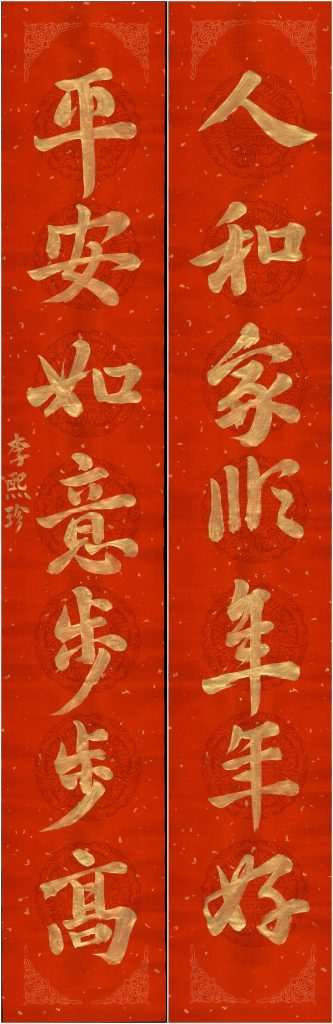 人和家顺年年好
平安如意步步高
李熙珍